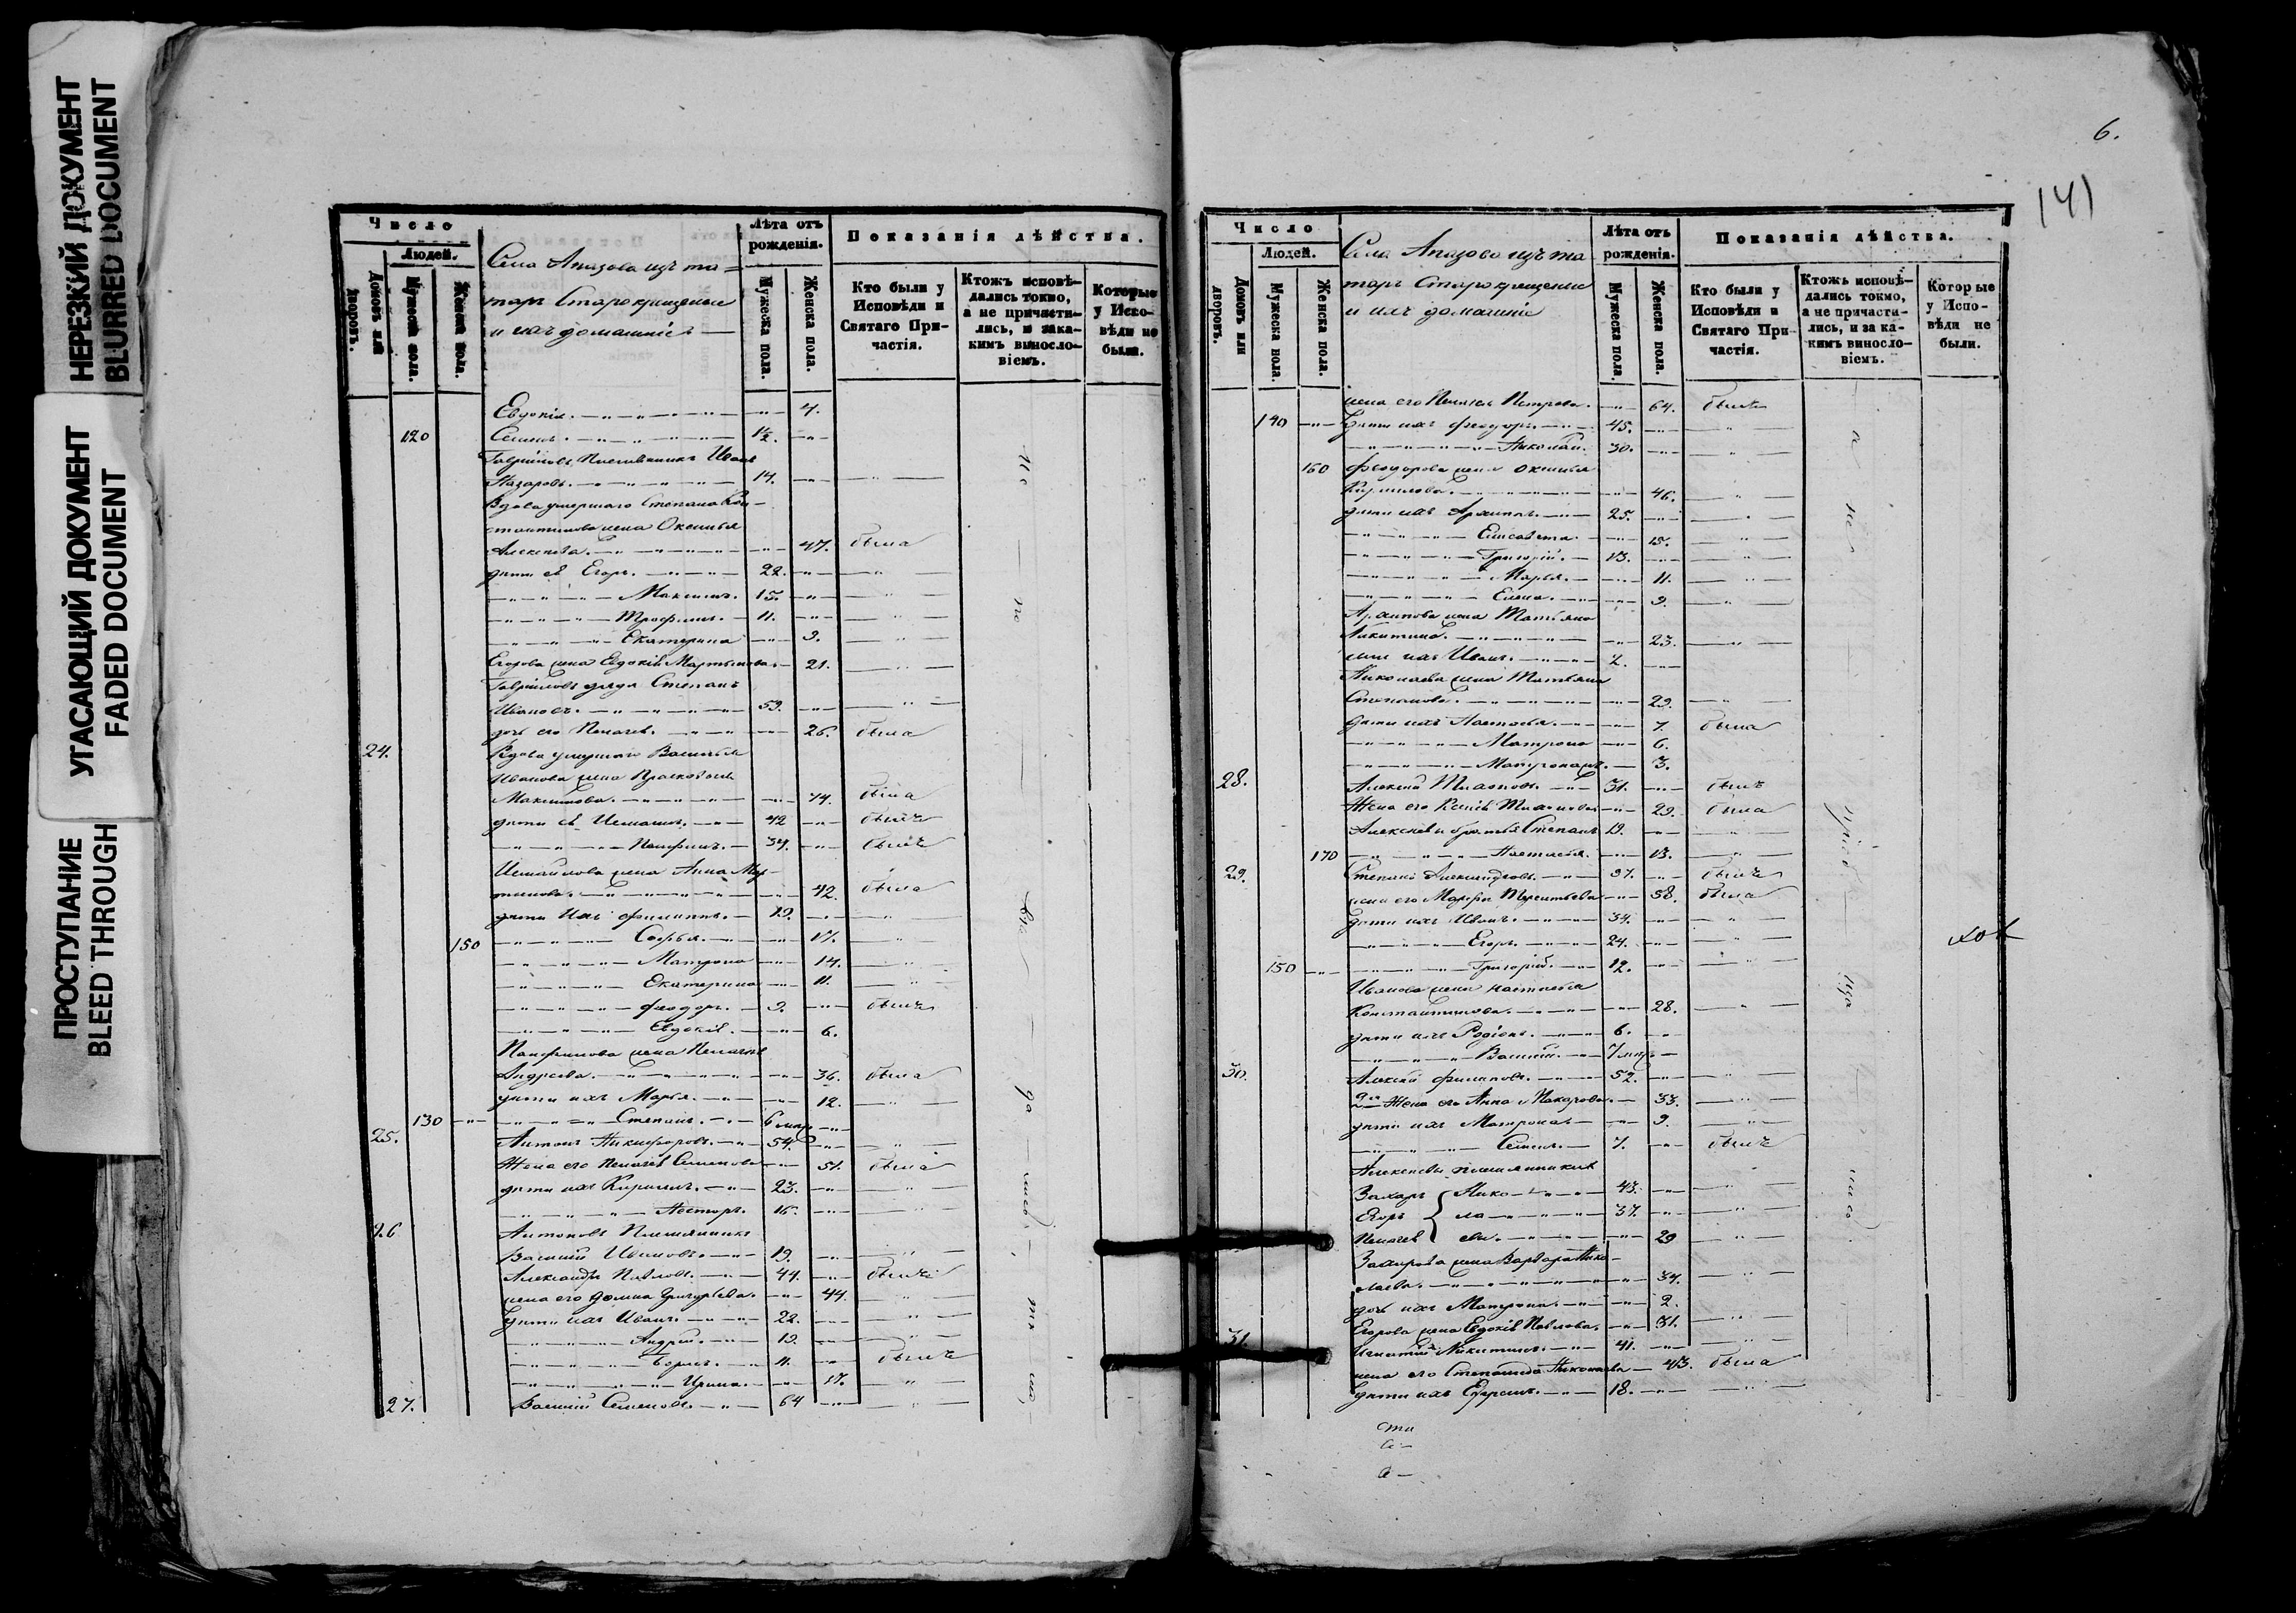 НЕРЕЗКИЙ ДОКУМЕНТ
BLURRED DOCUMENT
УГАСАЮЩИЙ ДОКУМЕНТ
FADED DOCUMENT
ПРОСТУПАНИЕ
BLEED THROUGH
Число
Людей.
Домовъ или дворовъ.
Мужеска пола.
Женска пола.
Села Апазова изъ та=
таръ Старокрещеные
и ихъ домашніе
Лѣта отъ рожденія.
Мужеска пола.
Женска пола.
Показанія дѣйства.
Кто были у Исповѣди и Святаго Причастія.
Ктожъ исповѣ-
дались токмо,
а не причасти-
лись, и зака-
кимъ винословіемъ.
Которые у Исповѣди не были.
Евдокія. 4.
120 Семенъ. 1½.
Гавріиловъ племянникъ Иванъ
Назаровъ. 14.
Вдова умершаго Степана Кон-
стантинова жена Оксинья
Алексѣева. 47. была
дѣти ея Егоръ. 22.
Максимъ. 15.
Трофимъ. 11.
Екатерина 9.
Егорова жена Евдокія Мартынова. 21.
Гавріиловъ дядя Степанъ
Ивановъ. 59.
дочь его Пелагея. 26. была
24. Вдова умершаго Василья
Иванова жена Прасковья
Максимова. 74. была
дѣти ея 42 былъ
Панфилъ. 34. былъ
жена Анна Мар-
тынова. 42. была
дѣти ихъ Филиппъ. 19.
150 Софья. 17.
Матрона 14.
Екатерина 11.
Феодоръ. 9. былъ
Евдокія. 6.
Панфилова жена Пелагея
Андреева. 36. была
дѣти ихъ Марья. 12.
130 Степанъ. 6 мѣс.
25. Антонъ Никифоровъ. 54.
Жена его Пелагея Семенова 51. была
дѣти ихъ Кирилъ. 23.
Несторъ. 16.
26 Антоновъ Племянникъ
Василій Ивановъ. 19.
Александръ Павловъ. 44. былъ
жена его Домна Григорьева. 44.
дѣти ихъ Иванъ. 22.
Андрей. 19.
Борисъ. 11. былъ
Ирина. 17.
27. Василій Семеновъ. 64
6.
141
Число
Людей.
Домовъ или дворовъ.
Мужеска пола.
Женска пола.
Села Апазова изъ та
таръ Старокрещеные
и ихъ домашніе
Лѣта отъ рожденія.
Мужеска пола.
Женска пола.
Показанія дѣйства.
Кто были у Исповѣди и Святаго Причастія.
Ктожъ исповѣ-
дались токмо,
а не причасти-
лись, и за ка-
кимъ винословіемъ.
Которые у Исповѣди не были.
жена его Пелагея Петрова. 64. была
140 Дѣти ихъ Феодоръ. 45.
Николай. 30.
160 Феодорова жена Оксинья
Кирилова. 46.
дѣти ихъ Архипъ. 25.
Елисавета. 15.
Григорій. 13.
Марья. 11.
Елена. 9.
Архипова жена Татьяна
Никитина. 23.
сынъ ихъ Иванъ. 2.
Николаева жена Татьяна
Степанова. 29.
дѣти ихъ Настасья. 7. была
Матрона 6.
Матрона. 3.
28. Алексѣй 31. былъ
Жена его Ксенія 29. была
Алексѣевы братья Степанъ 19.
170 Настасья. 13.
29. Степанъ Александровъ. 57. былъ
жена его Марфа Терентьева 58. была
дѣти ихъ Иванъ. 34.
Егоръ. 24.
150 Григорій. 12.
Иванова жена Настасья
Константинова. 28.
дѣти ихъ Родіонъ. 6.
Василій. 7 мѣс.
30. Алексѣй Филиповъ. 52.
2я Жена его Анна Макарова. 33.
дѣти ихъ Матрона 9.
Семенъ. 7. былъ
Алексѣевы племянники
Захаръ Нико 43.
Егоръ ла 37.
Пелагея евы. 29
Захарова жена Варвара Нико-
лаева. 34.
дочь ихъ Матрона. 2.
Егорова жена Евдокія Павлова. 31.
31. Игнатій Никитинъ. 41.
жена его Степанида Николаева 43. была
Дѣти ихъ Ефремъ. 18.